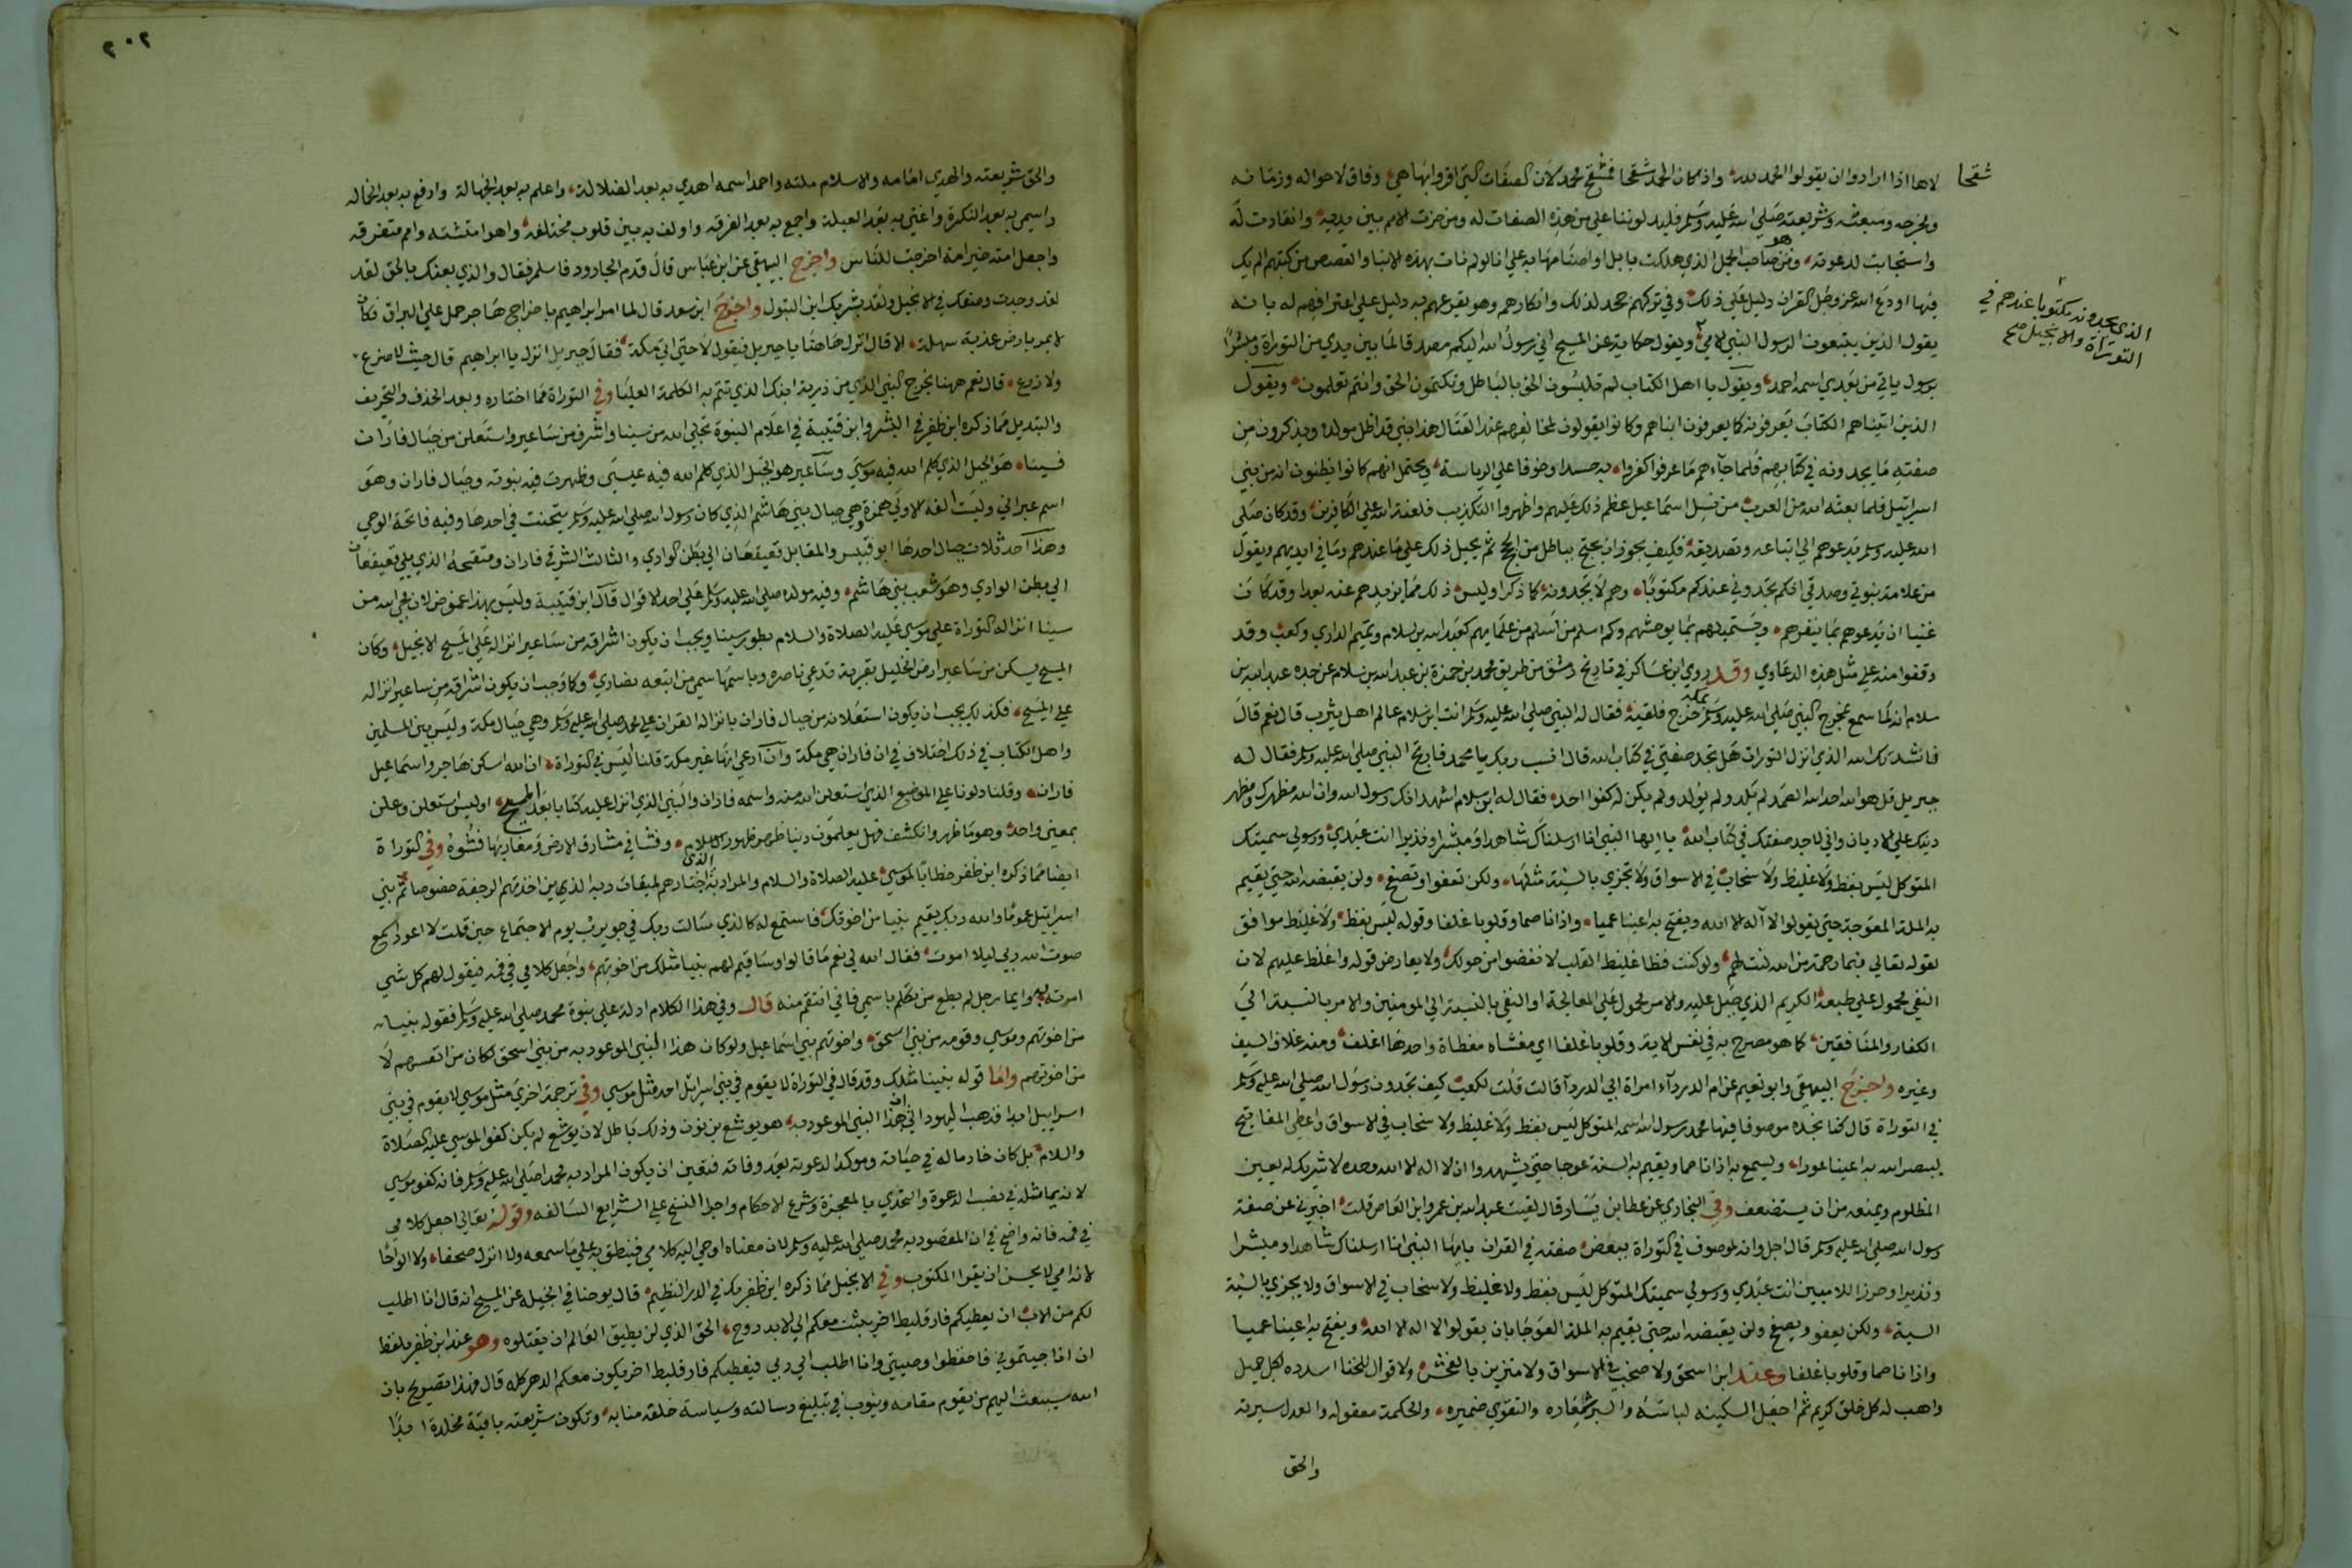 شقحا
لاها اذا ارادوا ان يقولوا الحمد لله واذا كان الحمد شقحا فمشقح محمد لان الصفات التي اقروا بها هي وفاق لاحواله وزمانه
ومخرجه ومبعثه وشريعته صلى الله عليه وسلم فليدلونا علي من هذه الصفات له ومن خرت الامم بين يديه وانقادت له
واستجابت لدعوته ومن هو صاحب الجمل الذي هلكت بابل واصنامها به علي انا لو لم نات بهذه الانبا والقصص من كتبهم الم يك
فيها اودع الله عز وجل القران دليل علي ذلك وفي تركهم جحد لذلك وانكارهم وهو يقرعهم به دليل علي اعترافهم له بانه
يقول الذين يتبعون الرسول النبي الامي ويقول حكاية عن المسيح اني رسول الله اليكم مصدقا لما بين يدي من التوراة ومبشرا
الذي يجدونه مكتوبا عندهم في
التوراة والانجيل صح
برسول ياتي من بعدي اسمه احمد ويقول يا اهل الكتاب لم تلبسون الحق بالباطل وتكتمون الحق وانتم تعلمون ويقول
الذين اتيناهم الكتاب يعرفونه كما يعرفون ابناهم وكانوا يقولون لمخالفيهم عند القتال هذا نبي قد اظل مولده ويذكرون من
صفته ما يجدونه في كتابهم فلما جاءهم ما عرفوا كفروا به حسدا وخوفا علي الرياسة ويحتمل انهم كانوا يظنون انه من بني
اسرائيل فلما بعثه الله من العرب من نسل اسماعيل عظم ذلك عليهم واظهروا التكذيب فلعنة الله علي الكافرين وقد كان صلي
الله عليه وسلم يدعوهم الي اتباعه وتصديقه فكيف يجوز ان يحتج بباطل من الحج ثم يحيل ذلك علي ما عندهم وما في ايديهم ويقول
من علامة نبوتي وصدقي انكم تجدوني عندكم مكتوبا وهم لا يجدونه كما ذكر اوليس ذلك مما يزيدهم عنه بعدا وقد كان
غنيا ان يدعوهم بما ينفرهم ويستميلهم بما يوحشهم وكم اسلم من اسلم من علمايهم كعبد الله بن سلام وتميم الداري وكعب وقد
وقفوا منه علي مثل هذه الدعاوي وقد روي ابن عساكر في تاريخ دمشق من طريق محمد بن حمزة بن عبد الله بن سلام عن جده عبد الله بن
سلام انه لما سمع بمخرج النبي صلي الله عليه وسلم بمكة خرج فلقيه فقال له النبي صلي الله عليه وسلم انت ابن سلام عالم اهل يثرب قال نعم قال
فانشدتك الله الذي انزل التوراة هل تجد صفتي في كتاب الله قال انسب ربك يا محمد فارتج النبي صلي الله عليه وسلم فقال له
جبريل قل هو الله احد الله الصمد لم يلد ولم يولد ولم يكن له كفوا احد فقال له ابن سلام اشهد انك رسول الله وان الله مظهرك ومظهر
دينك علي الاديان واني لاجد صفتك في كتاب الله يا ايها النبي انا ارسلناك شاهدا ومبشرا ونذيرا انت عبدي ورسولي سميتك
المتوكل ليس بفظ ولا غليظ ولا سخاب في الاسواق ولا تجزي بالسيئة مثلها ولكن تعفوا وتصفح ولن يقبضه الله حتي يقيم
به الملة المعوجة حتي يقولوا لا اله الا الله ويفتح به اعينا عميا واذانا صما وقلوبا غلفا وقوله ليس بفظ ولا غليظ موافق
لقوله تعالي فبما رحمة من الله لنت لهم ولو كنت فظا غليظ القلب لانفضوا من حولك ولا يعارض قوله واغلظ عليهم لان
النفي محمول علي طبعه الكريم الذي جبل عليه والامر محمول علي المعالجة او النفي بالنسبة الي المومنين والامر بالنسبة الي
الكفار والمنافقين كما هو مصرح به في نفس الاية وقلوبا غلفا اي مغشاه مغطاة واحدها اغلف ومنه غلاف السيف
وغيره واخرج البيهقي وابو نعيم عن ام الدرداء امراة ابي الدرداء قالت قلت لكعب كيف تجدون رسول الله صلي الله عليه وسلم
في التوراة قال كنا نجده موصوفا فيها محمد رسول الله اسمه المتوكل ليس بفظ ولا غليظ ولا سخاب في الاسواق واعطي المفاتيح
ليبصر الله به اعينا عورا ويسمع به اذانا صما ويقيم به السنة عوجا حتي يشهدوا ان لا اله الا الله وحده لا شريك له يعين
المظلوم ويمنعه من ان يستضعف وفي البخاري عن عطا بن يسار قال لقيت عبد الله بن عمرو ابن العاص قلت اخبرني عن صفة
رسول الله صلي الله عليه وسلم قال اجل وانه لموصوف في التوراة ببعض صفته في القران يا ايها النبي انا ارسلناك شاهدا ومبشرا
ونذيرا وحرزا للاميين انت عبدي ورسولي سميتك المتوكل ليس بفظ ولا غليظ ولا سخاب في الاسواق ولا يجزي بالسيئة
السية ولكن يعفو ويصفح ولن يقبضه الله حتي يقيم به الملة العوجا بان يقولوا لا اله الا الله ويفتح به اعينا عميا
واذانا صما وقلوبا غلفا وعند ابن اسحق ولا صخب في الاسواق ولا متزين بالفحش ولا قوال للخنا اسدده لكل جميل
واهب له كل خلق كريم ثم اجعل السكينه لباسه والبر شعاره والتقوي ضميره والحكمة معقوله والعدل سيرته
والحق
٢٠٢
والحق شريعته والهدي امامه والاسلام ملته واحمد اسمه اهدي به بعد الضلالة واعلم به بعد الجهالة وارفع به بعد الخماله
واسمي به بعد النكرة واغني به بعد العيلة واجمع به بعد الفرقه واولف به بين قلوب مختلفة واهوا متشتته وامم متفرقه
واجعل امته خير امة اخرجت للناس واخرج البيهقي عن ابن عباس قال قدم الجارود فاسلم فقال والذي بعثك بالحق لقد
لقد وجدت وصفك في الانجيل ولقد بشر بك ابن البتول واخرج ابن سعد قال لما امر ابراهيم باخراج هاجر حمل علي البراق فكان
لا يمر بارض عذبة سهلة الا قال انزل هاهنا يا جبريل فيقول لا حتي اتي مكة فقال جبريل انزل يا ابراهيم قال حيث لا ضرع
ولا زرع قال نعم ههنا يخرج النبي الذي من ذرية ابنك الذي تتم به الكلمة العليا وفي التوراة مما اختاره وبعد الحذف والتحريف
والتبديل مما ذكره ابن ظفر في البشر وابن قتيبة في اعلام النبوة تجلي الله من سينا واشرق من ساعير واستعلن من جبال فاران
فسينا هو الجبل الذي كلم الله فيه موسي وساعير هو الجبل الذي كلم الله فيه عيسي وظهرت فيه نبوته وجبال فاران وهو
اسم عبراني وليست الفه الاولي همزة وهي جبال بني هاشم الذي كان رسول الله صلي الله عليه وسلم يتحنث في احدها وفيه فاتحة الوحي
وهذا احد ثلاث جبال احدها ابو قبيس والمقابل قعيقعان الي بطن الوادي والثالث الشرقي فاران ومنفتحه الذي يلي قعيقعان
الي بطن الوادي وهو شعب بني هاشم وفيه مولده صلي الله عليه وسلم علي احد الاقوال قال ابن قتيبة وليس بهذا غموض لان تجلي الله من
سينا انزاله التوراة علي موسي عليه الصلاة والسلام بطور سينا ويجب ان يكون اشراقه من ساعير انزاله علي المسيح الانجيل وكان
المسيح يسكن من ساعير ارض الخليل بقرية تدعي ناصره وباسمها سمي من اتبعه نصاري وكما وجب ان يكون اشراقه من ساعير انزاله
علي المسيح فكذلك يجب ان يكون استعلانه من جبال فاران بانزاله القران علي محمد صلي الله عليه وسلم وهي جبال مكة وليس بين المسلمين
واهل الكتاب في ذلك اختلاف في ان فاران هي مكة وان ادعي انها غير مكة قلنا اليس في التوراة ان الله اسكن هاجر واسماعيل
فاران وقلنا دلونا علي الموضع الذي استعلن الله منه واسمه فاران والنبي الذي انزل عليه كتابا بعد المسيح اوليس استعلن وعلن
بمعني واحد وهو ما ظهر وانكشف فهل يعلمون دينا ظهر ظهور الاسلام وفشا في مشارق الارض ومغاربها فشوه وفي التوراة
ايضا مما ذكره ابن ظفر خطابا لموسي عليه الصلاة والسلام والمراد به الذي اختارهم لميقات ربه الذين اخذتهم الرجفة خصوصا ثم بني
اسرايئل عموما والله ربك يقيم نبيا من اخوتك فاستمع له كالذي سالت ربك في حوريب يوم الاجتماع حين قلت لا اعود اسمع
صوت الله ربي ليلا اموت فقال الله لي نعم ما قالوا وساقيم لهم نبيا مثلك من اخوتهم واجعل كلامي في فيه فيقول لهم كل شي
امرته به وايما رجل لم يطع من تكلم باسمي فاني انتقم منه قال وفي هذا الكلام ادلة علي نبوة محمد صلي الله عليه وسلم فقوله نبيا
من اخوتهم وموسي وقومه من بني اسحق واخوتهم بني اسماعيل ولو كان هذا النبي الموعود به من بني اسحق لكان من انفسهم لا
من اخوتهم واما قوله نبيا مثلك وقد قال في التوراة لا يقوم في بني اسرائل احد مثل موسي وفي ترجمة اخري مثل موسي لا يقوم في بني
اسراييل ابدا فذهب اليهود الي ان هذا النبي الموعود به هو يوشع بن نون وذلك باطل لان يوشع لم يكن كفوا لموسي عليه الصلاة
والسلام بل كان خادما له في حياته وموكدا لدعوته بعد وفاته فتعين ان يكون المراد به محمدا صلي الله عليه وسلم فانه كفو موسي
لانه يماثله في نصب الدعوة والتحدي بالمعجزة وشرع الاحكام واجرا النسخ علي الشرايع السالفه وقوله تعالي اجعل كلامي
في فمه فانه واضح في ان المقصود به محمد صلي الله عليه وسلم لان معناه اوحي اليه كلامي فينطق به علي ما سمعه ولا انزل صحفا ولا الواحا
لانه امي لا يحسن ان يقرا المكتوب وفي الانجيل مما ذكره ابن ظفربك في الدر النظيم قال يوحنا في انجيله عن المسيح انه قال انا اطلب
لكم من الاب ان يعطيكم فارقليط اخر يثبت معكم الي الابد روح الحق الذي لن يطيق العالم ان يقتلوه وهو عند ابن ظفر بلفظ
ان انا حببتموني فاحفظوا وصيتي وانا اطلب الي ربي فيعطيكم فارقليط اخر يكون معكم الدهر كله قال فهذا تصريح بان
الله سيبعث اليهم من يقوم مقامه وينوب في تبليغ رسالته وسياسة خلقه منابه وتكون شريعته باقية مخلدة ابدا